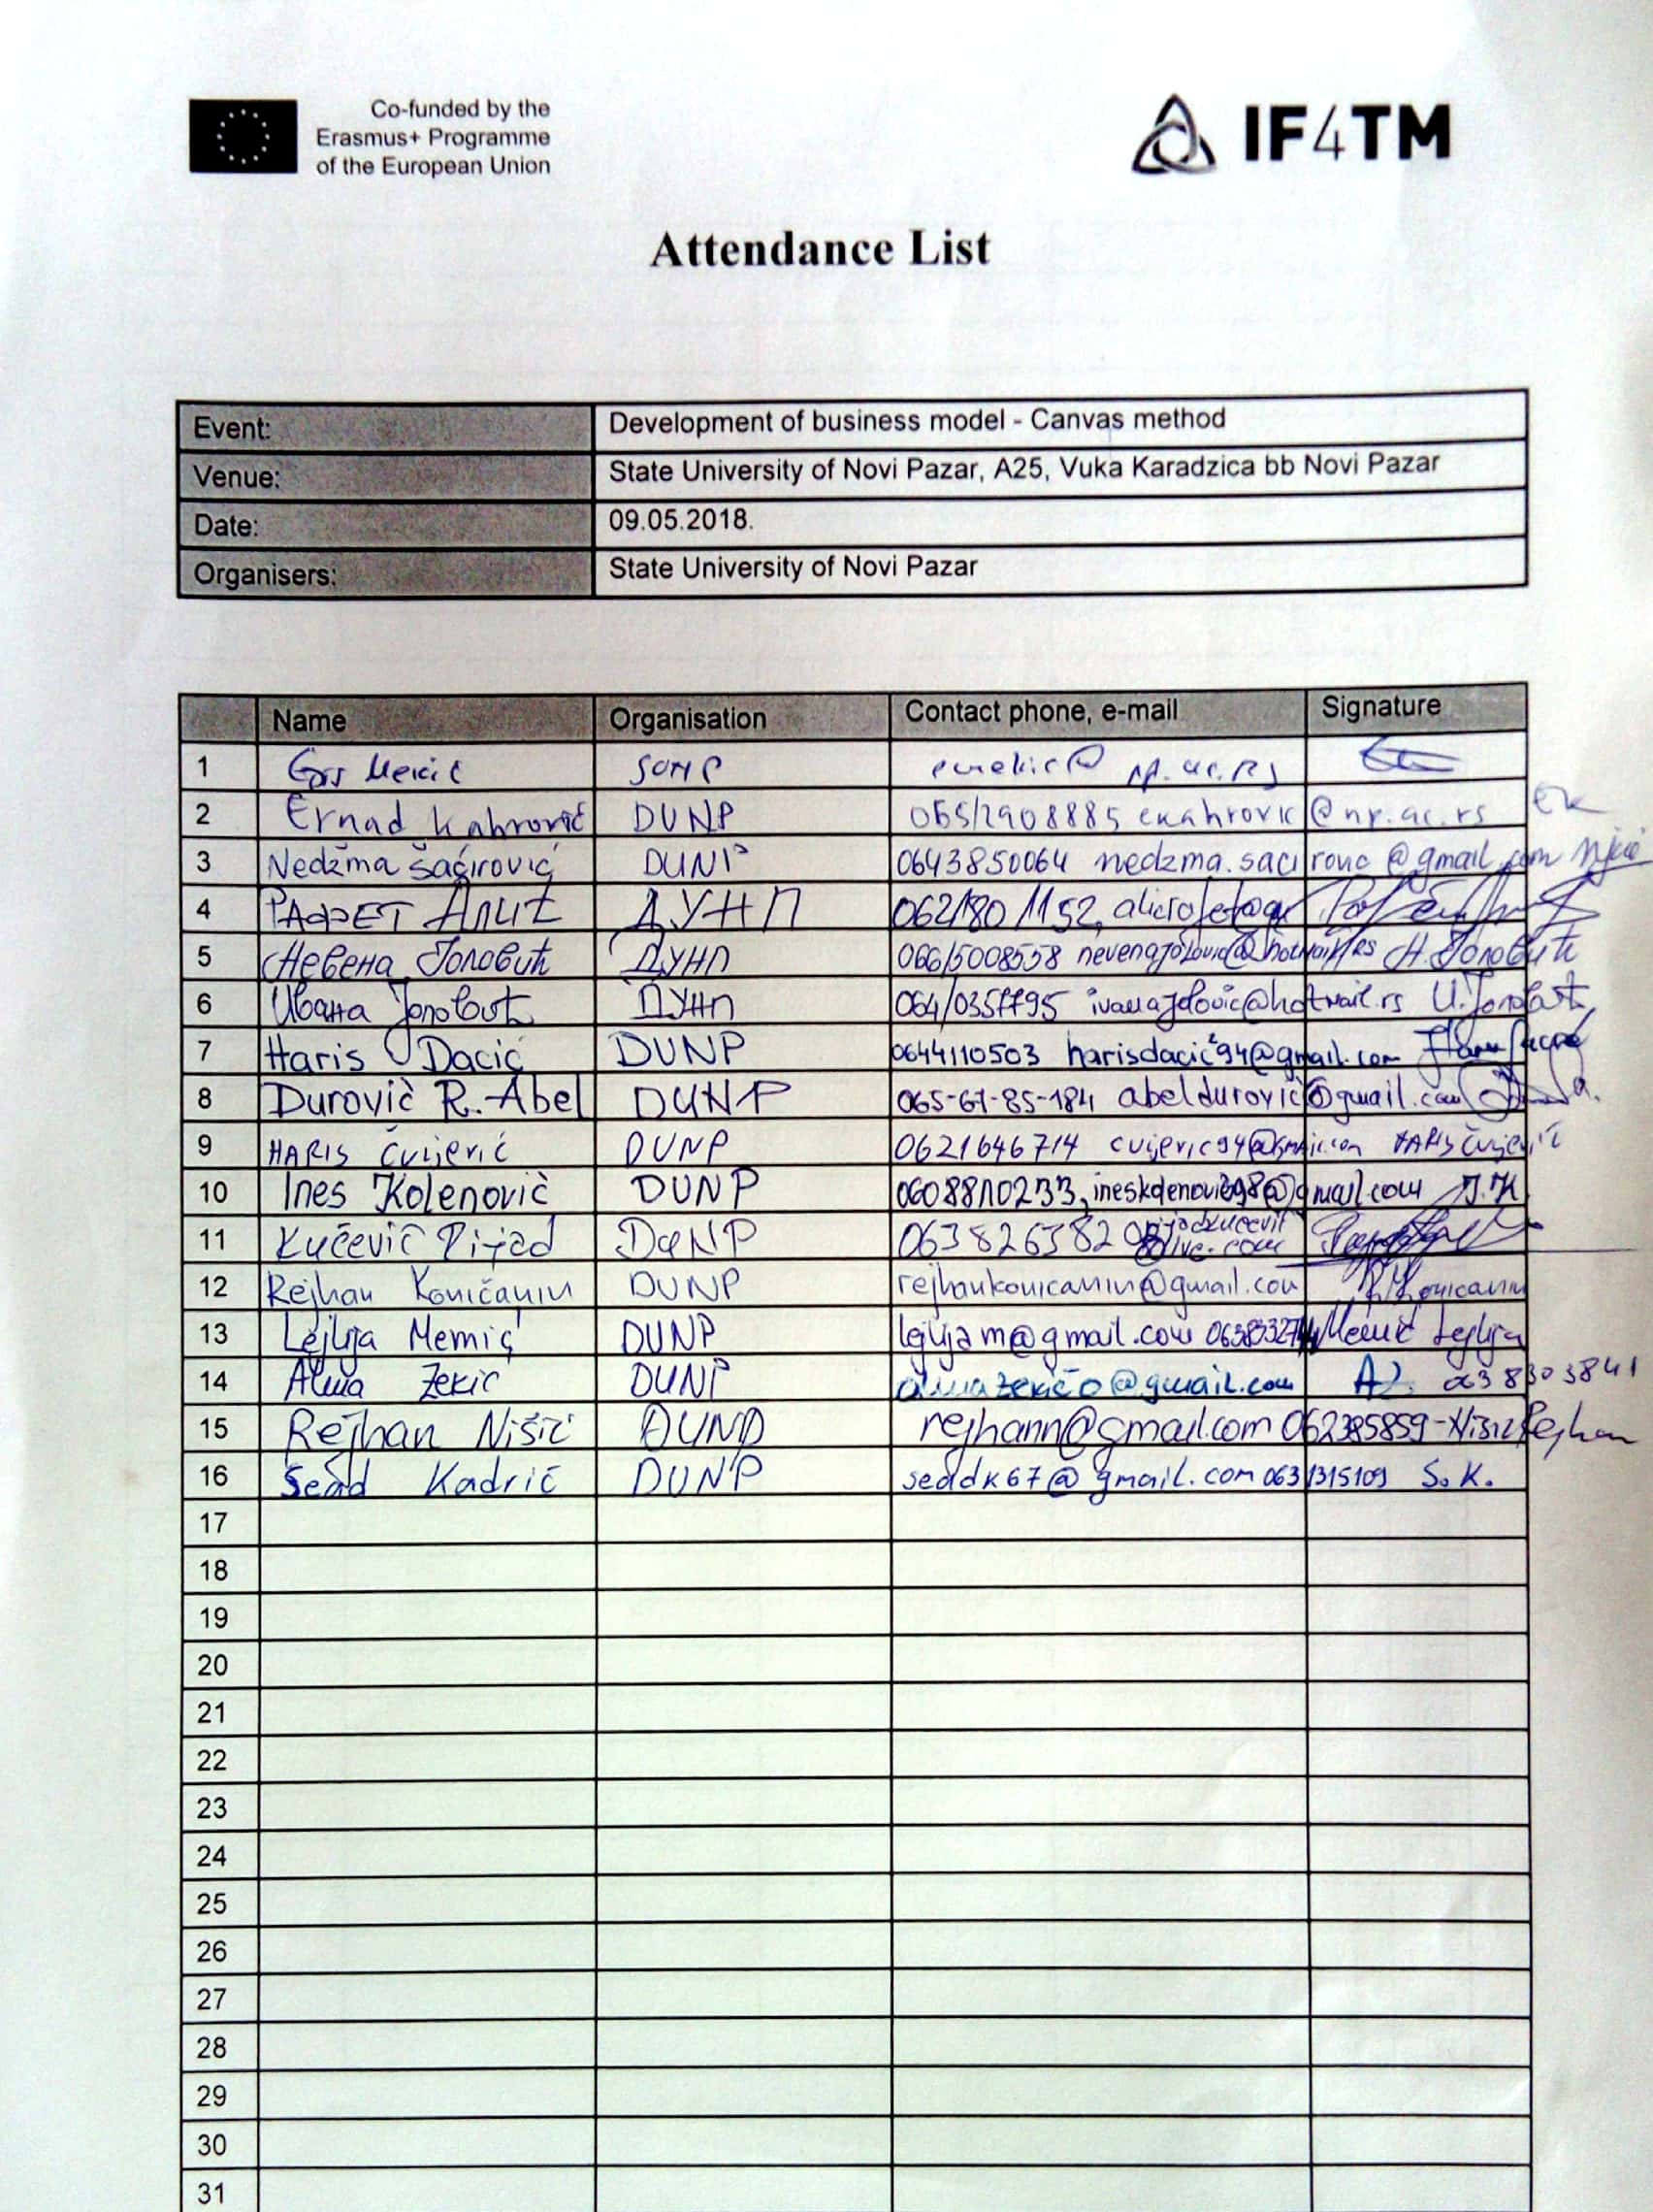 Co-funded by the
Erasmus+ Programme
of the European Union
IF4TM
Attendance List
Event: Development of business model - Canvas method
Venue: State University of Novi Pazar, A25, Vuka Karadzica bb Novi Pazar
Date: 09.05.2018.
Organisers: State University of Novi Pazar
Name Organisation Contact phone, e-mail Signature
1 np.ac.rs
2 Ernad Kahrović DUNP 065/2908885 ekahrovic@np.ac.rs EK
3 Nedžma Šaćirović DUNP 0643850064 nedzma.sacirovic@gmail.com
4 РАФЕТ Алић ДУНП 062/180 1152,
5 Невена Јоловић ДУНП 066/5008558 nevenajolovic@hotmail.rs Н. Јоловић
6 Ивана Јоловић ДУНП ivanajolovic@hotmail.rs И. Јоловић
7 Haris Dacić DUNP 0644110503 harisdacic94@gmail.com
8 Durović R. Abel DUNP 065-67-85-184 abeldurovic@gmail.com
9 HARIS Čvijerić DUNP 0621646714 cvijeric94@gmail.com HARIS Čvijerić
10 Ines Kolenović DUNP 0608810233, ineskolenovic98@gmail.com I.K.
11 Kučević Rijad DUNP 0638263820 rijadkucevic
@live.com
12 Rejhan Koničanin DUNP rejhankonicanin@gmail.com R.Konicanin
13 Lejlija Memić DUNP Memić Lejlija
14 Alma Zekić DUNP A Z. 063 8303841
15 Rejhan Nišić DUNP rejhann@gmail.com 062385859 - Nišić Rejhan
16 Sead Kadrić DUNP seadk67@gmail.com 063/1315109 S. K.
17
18
19
20
21
22
23
24
25
26
27
28
29
30
31